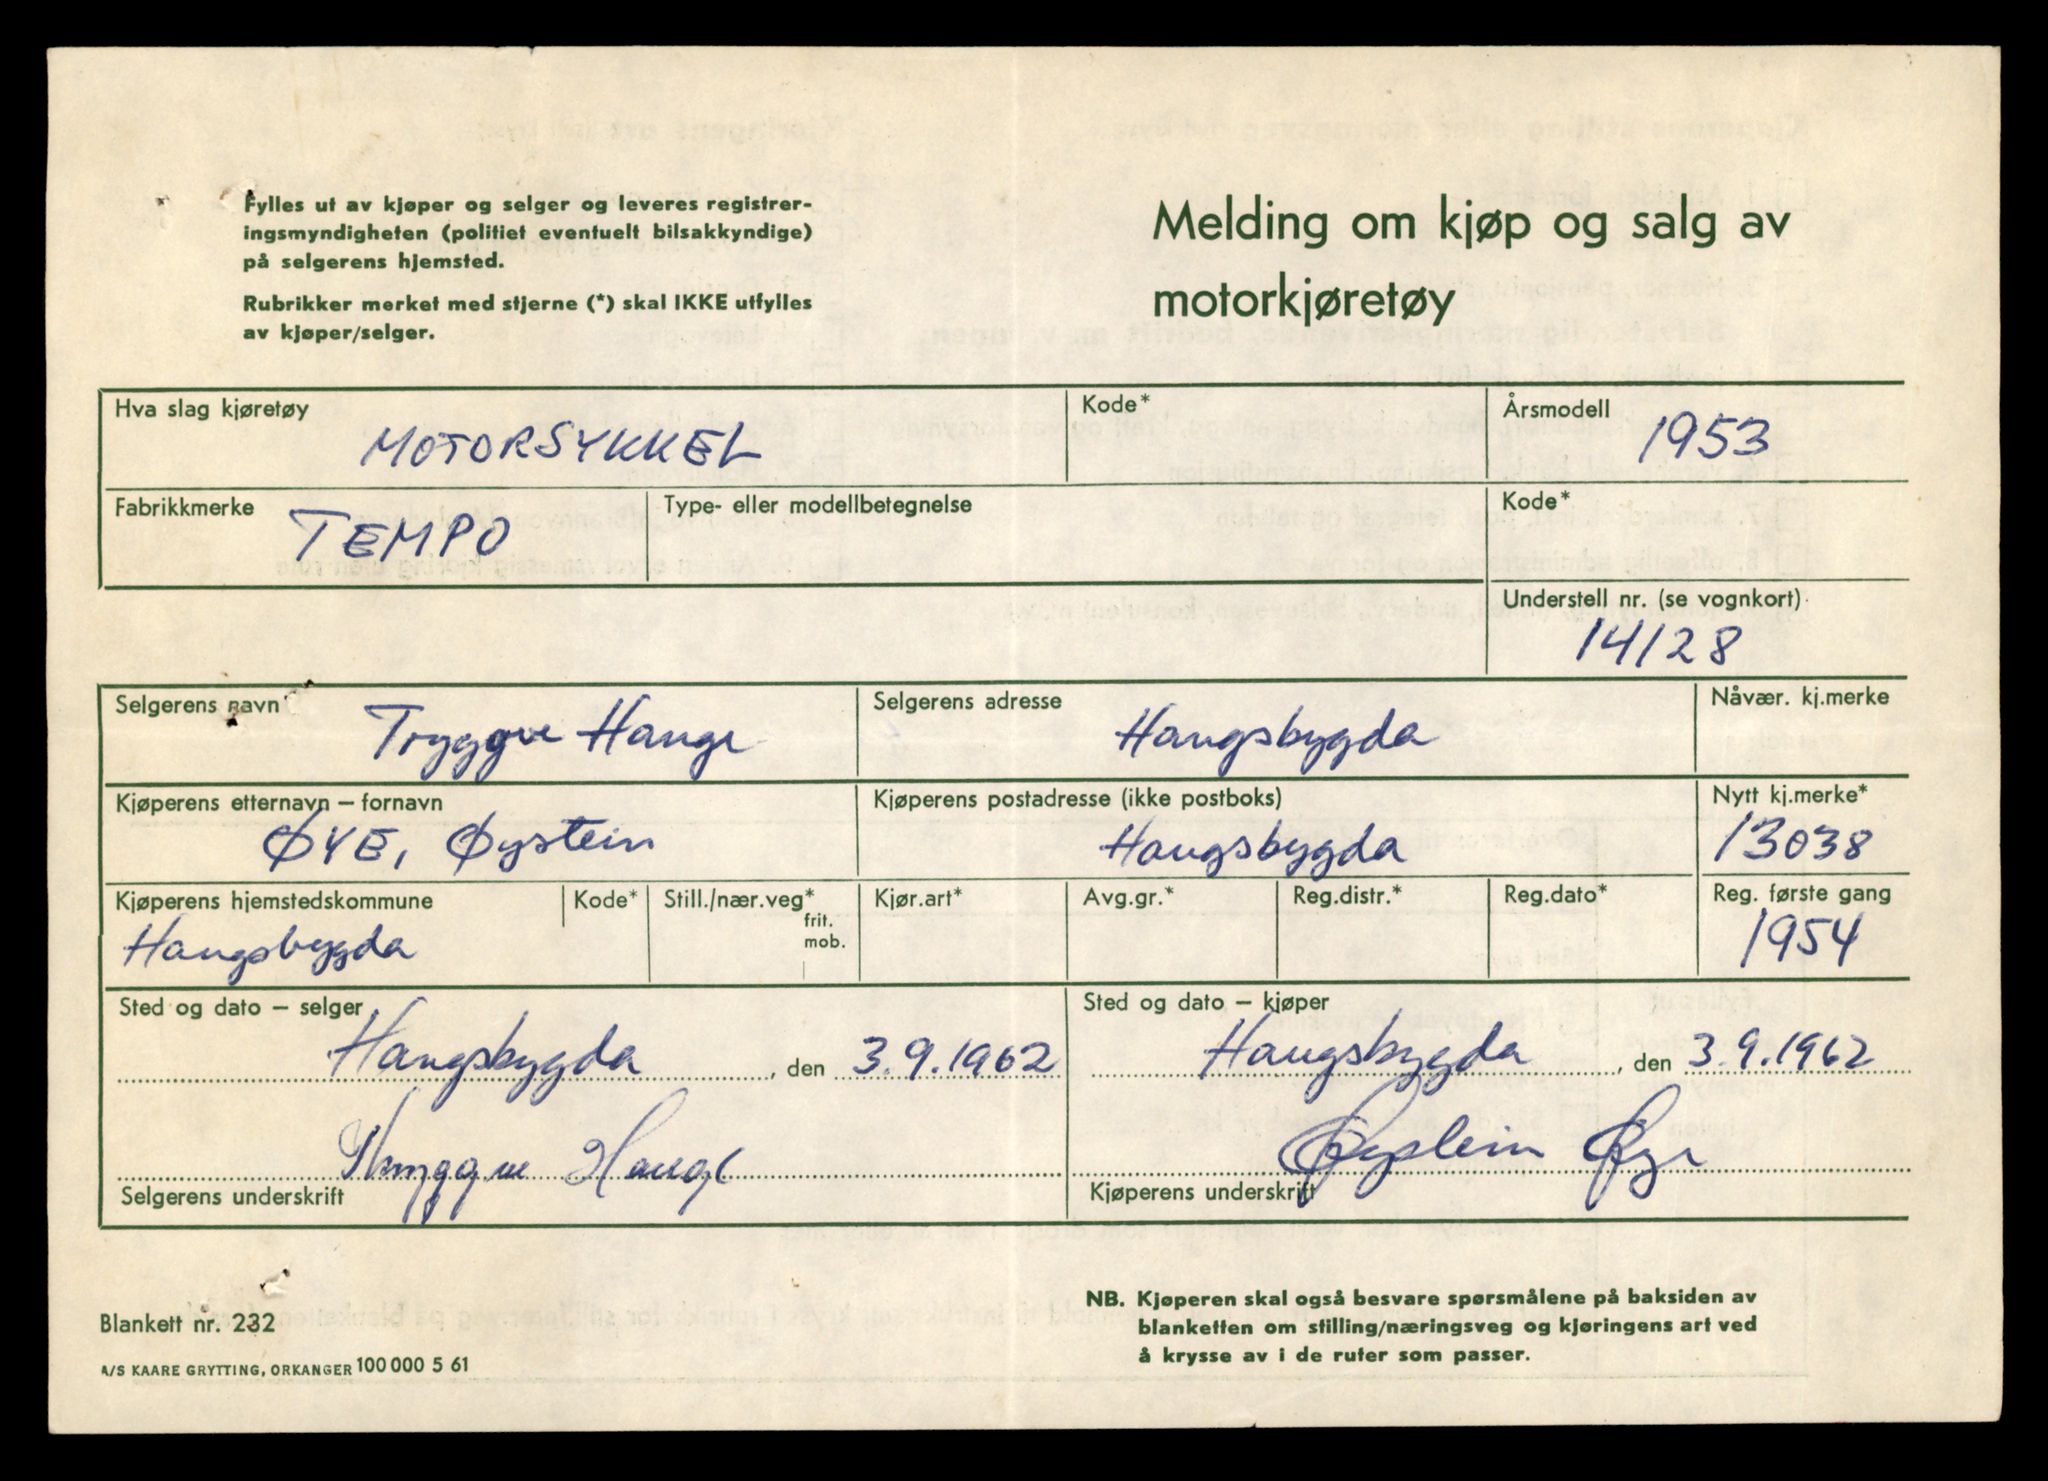 Fylles ut av kjøper og selger og leveres registrer-
ingsmyndigheten (politiet eventuelt bilsakkyndige)
på selgerens hjemsted.
Rubrikker merket med stjerne (*) skal IKKE utfylles
av kjøper/selger.
Melding om kjøp og salg av
motorkjøretøy
Hva slag kjøretøy
MOTORSYKKEL
Kode*
Årsmodell
1953
Fabrikkmerke
TEMPO
Type- eller modellbetegnelse
Kode*
Understell nr. (se vognkort)
14128
Selgerens navn
Tryggve Hauge
Selgerens adresse
Haugsbygda
Nåvær. kj.merke
Kjøperens etternavn – fornavn
ØYE, Øystein
Kjøperens postadresse (ikke postboks)
Haugsbygda
Nytt kj.merke*
13038
Kjøperens hjemstedskommune
Haugsbygda
Kode*
Still./nær.veg*
frit.
mob.
Kjør.art*
Avg.gr.*
Reg.distr.*
Reg.dato*
Reg. første gang
1954
Sted og dato – selger
Haugsbygda, den 3.9.1962
Tryggve Hauge
Selgerens underskrift
Sted og dato – kjøper
Haugsbygda, den 3.9.1962
Øystein Øye
Kjøperens underskrift
Blankett nr. 232
A/S KAARE GRYTTING, ORKANGER 100 000 5 61
NB. Kjøperen skal også besvare spørsmålene på baksiden av
blanketten om stilling/næringsveg og kjøringens art ved
å krysse av i de ruter som passer.